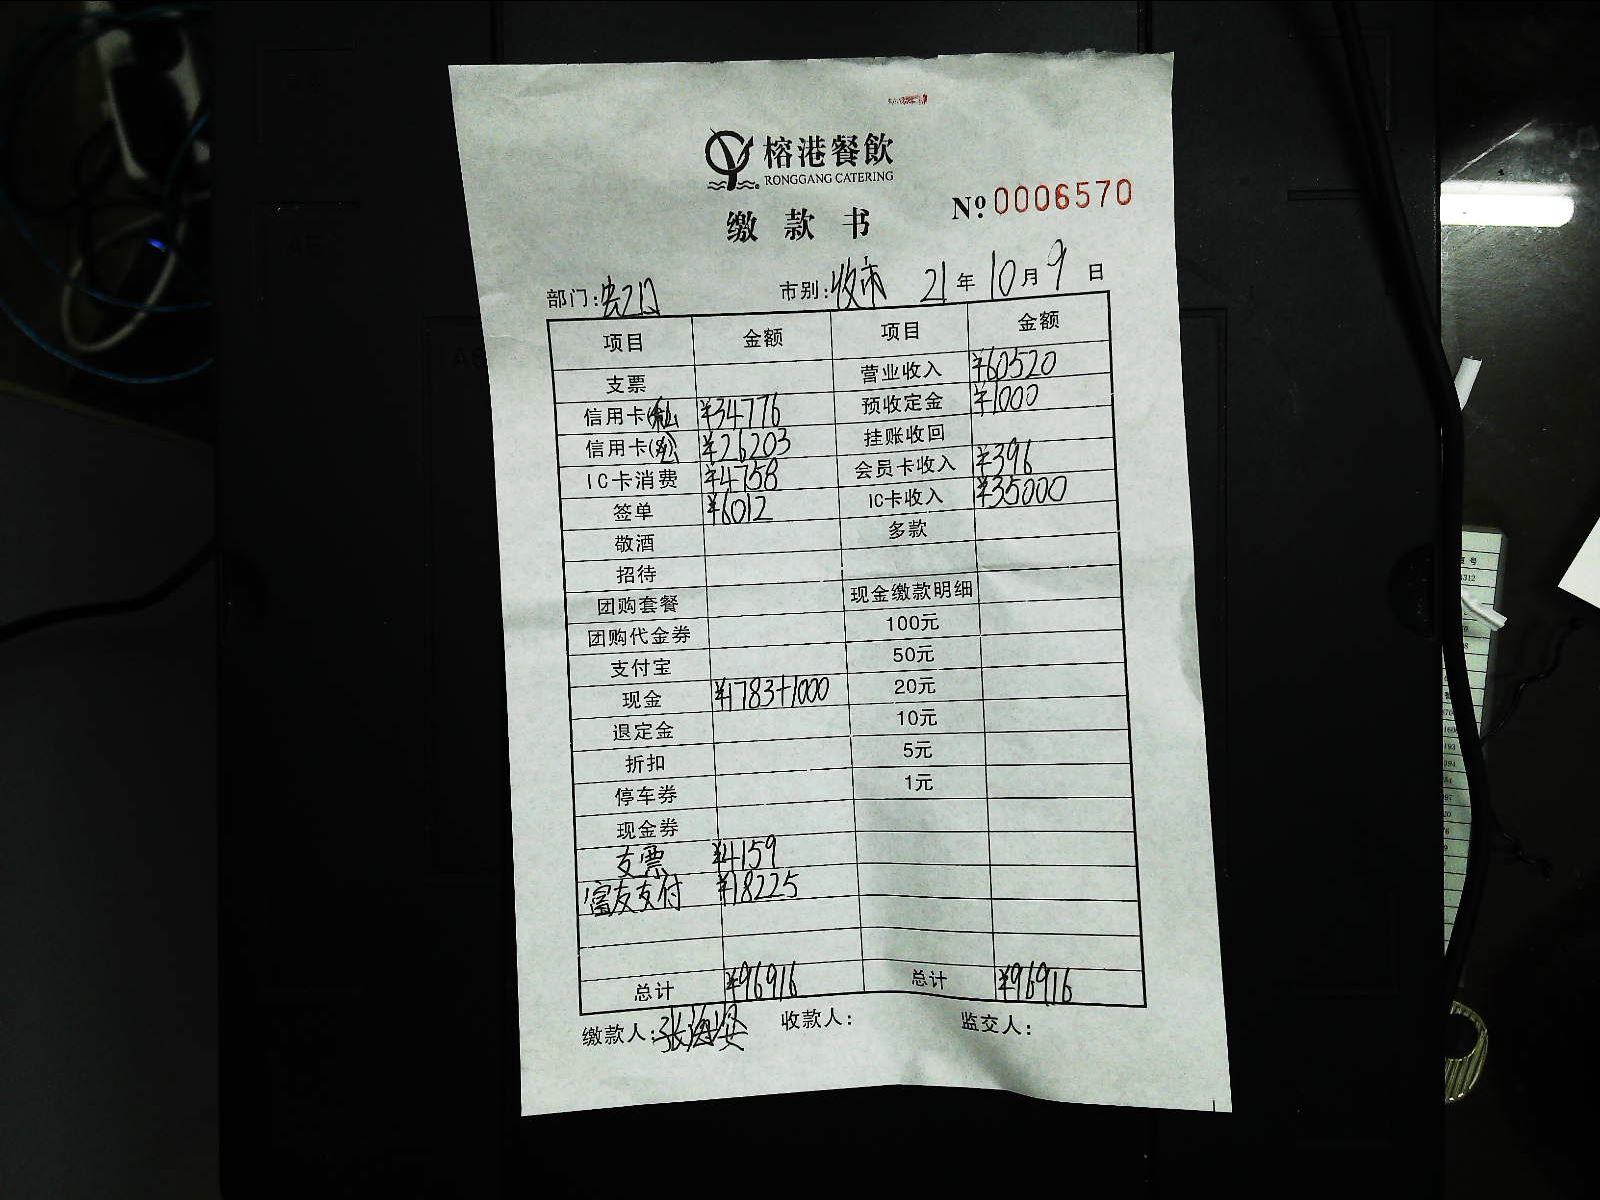 榕港餐飲
RONGGANG CATERING
缴款书
№ 0006570
部门: 市别:收市 21年10月9日
项目 金额 项目 金额
支票 营业收入 ¥60520
信用卡(私) ¥34776 预收定金 ¥1000
信用卡(公) ¥26203 挂账收回
IC卡消费 ¥4758 会员卡收入 ¥396
签单 ¥6012 IC卡收入 ¥35000
敬酒 多款
招待
团购套餐 现金缴款明细
团购代金券 100元
支付宝 50元
现金 ¥1783+1000 20元
退定金 10元
折扣 5元
停车券 1元
现金券
支票 ¥4159
富友支付 ¥18225
总计 ¥96916 总计 ¥96916
缴款人:张海 收款人: 监交人: